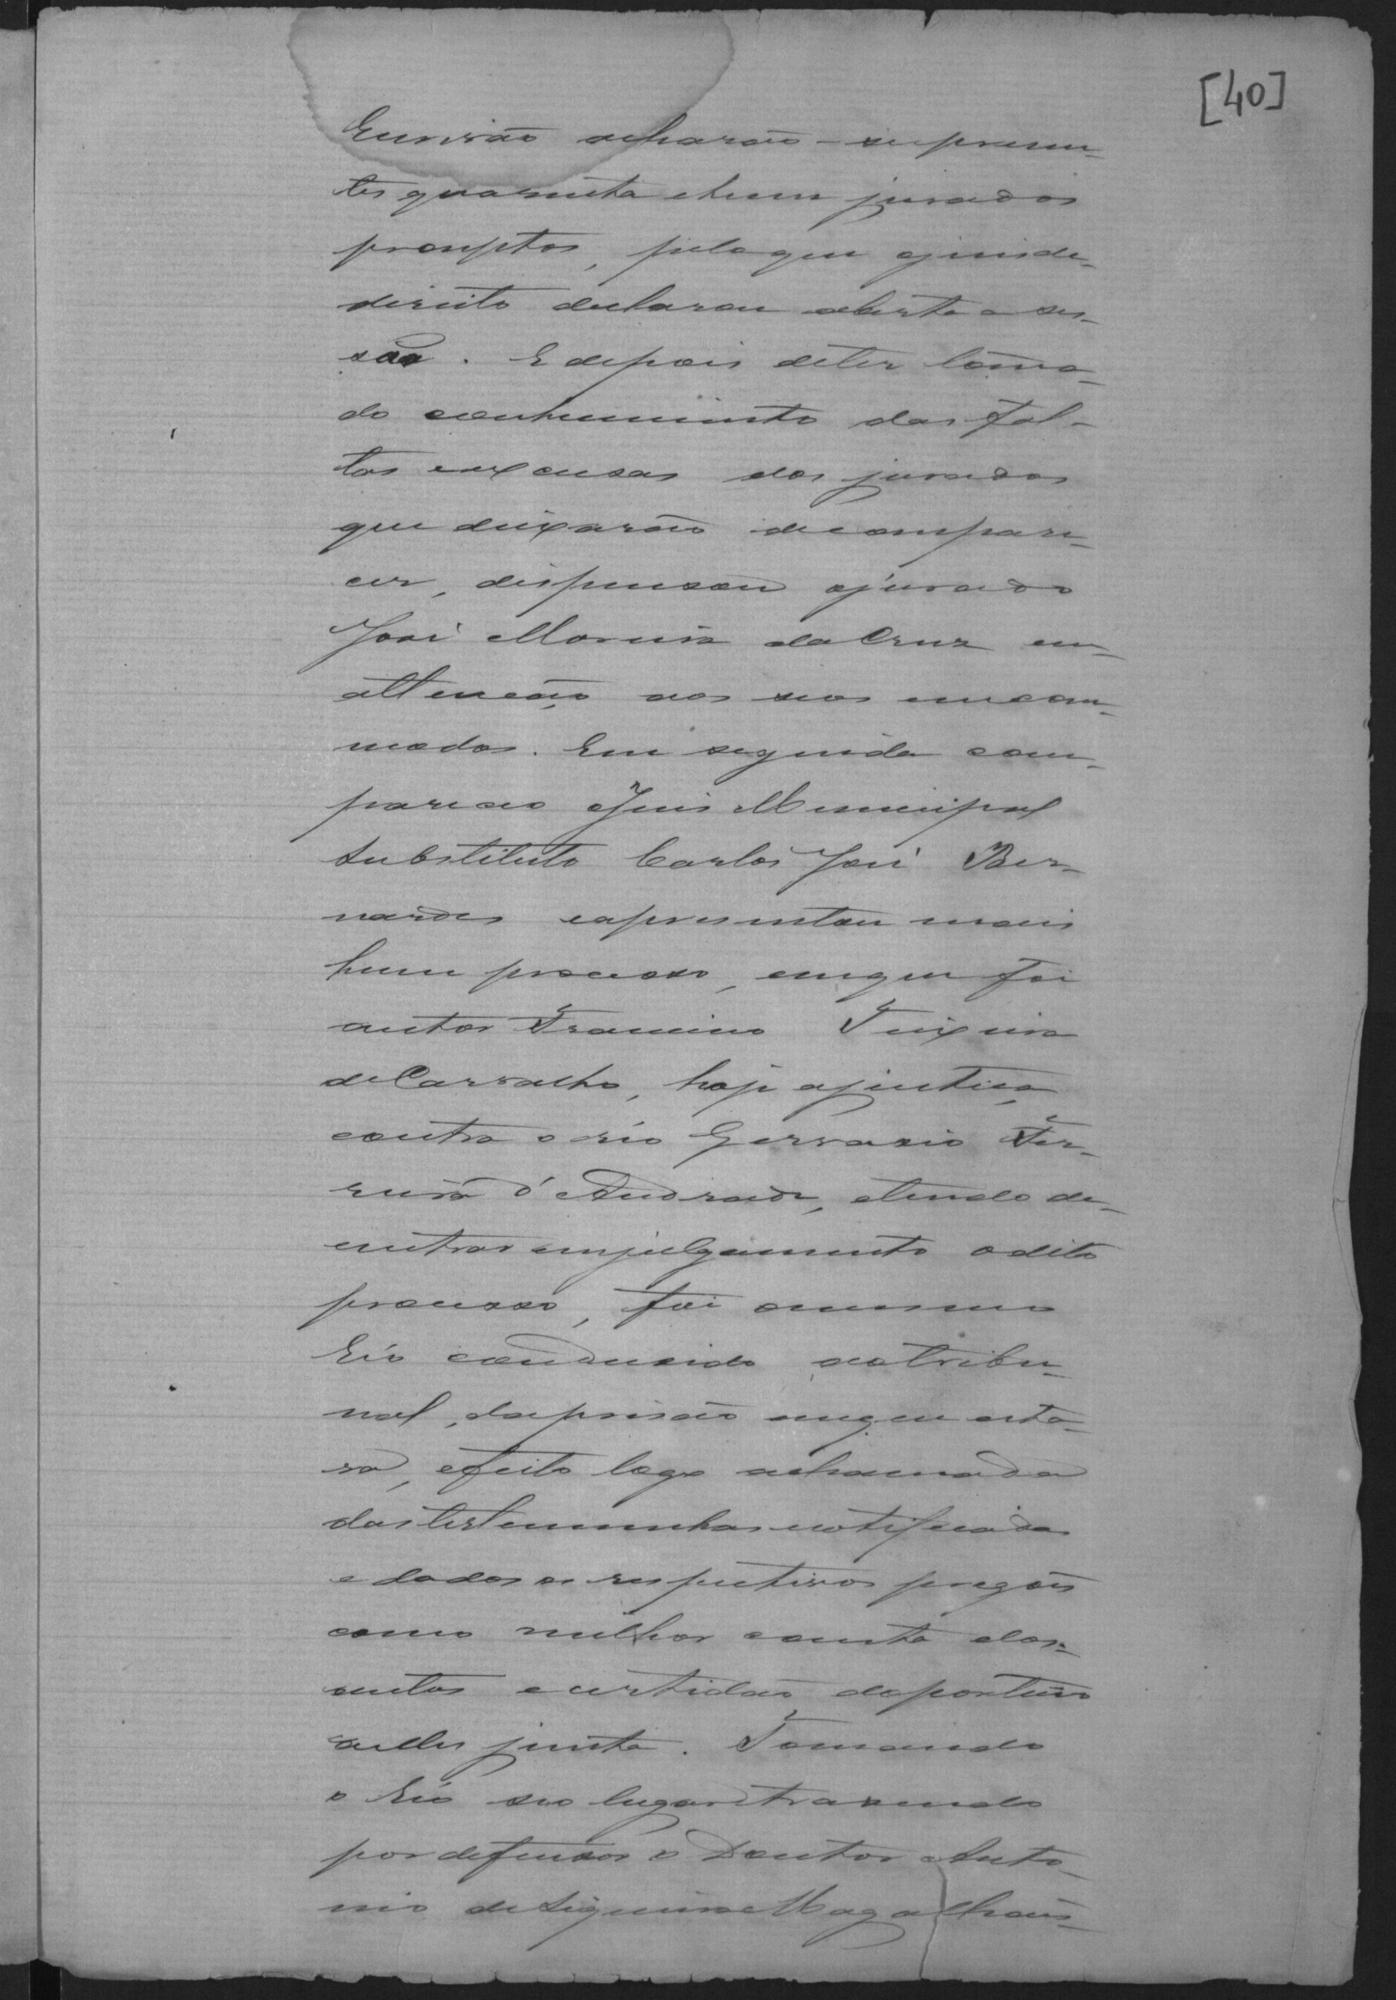 [40]
Escrivão acharão-se presen-
tes quarenta e hum jurados
promptos, pelo que o juis de
direito declarou aberta a ses-
são. E depois de ter toma-
do conhecimento das fal-
tas e excusas dos jurados
que deixarão de compare-
cer, dispensou o jurado
José Moreira da Cruz em
attenção aos seos encom-
modos. Em seguida com-
pareceo o Juis Municipal
Substituto Carlos José Ber-
nardes e apresentou mais
hum processo, em que foi
autor Francisco Teixeira
de Carvalho, hoje a justiça
contra o réo Gervasio Fer-
reira d'Andrade, e tendo de
entrar em julgamento o dito
processo, foi o mesmo
Réo condusido ao tribu-
nal, da prisão em que esta-
va, e feito logo a chamada
das testemunhas notificadas
e dados os respectivos pregões
como milhor consta dos
autos e certidão do porteiro
a elles junta. Tomando
o Réo seo lugar e trasendo
por defensor o Doutor Anto-
nio de Siqueira Magalhães